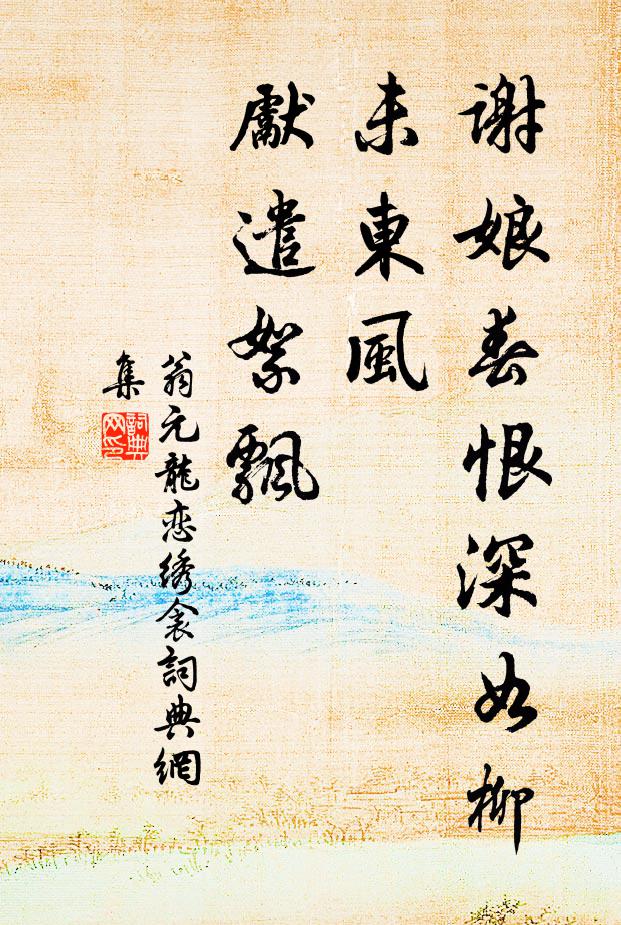 謝娘春恨深如柳
未東風
獻遣絮飄
翁元龍恋綉衾詞典網
集
詞典
网印